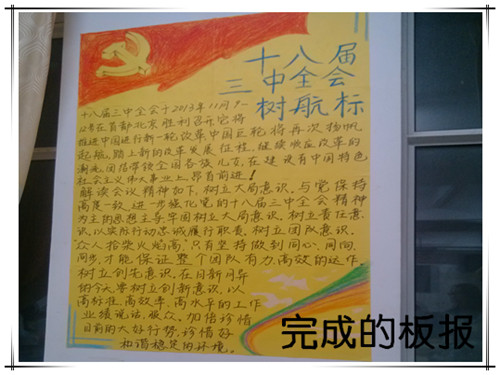 十八届
三中全会
树航标
十八届三中全会于2013年11月9-
在首都北京胜利召开它将
推进中国进行新一轮改革中国巨轮将再次扬帆
起航,踏上新的改革发展征程,继续顺应改革的
潮流团结带领全国各族儿女,在建设有中国特色
社会主义伟大事业上昂首前进!
解读会议精神如下,树立大局意识,与党保持
高度一致,进一步强化党的十八届三中全会精神
为主的思想主导,牢固树立大局意识,树立责任意
识,以实际行动忠诚履行职责,树立团队意识,
众人拾柴火焰高,只有坚持做到同心、同向、
同步,才能保证整个团队有力,高效的运作,
树立创先意识,在日新月异
的今天要树立创新意识,以
高标准,高效率,高水平的工作
业绩说话,服众,加倍珍惜
目前的大好行势,珍惜好
和谐稳定的环境。
完成的板报